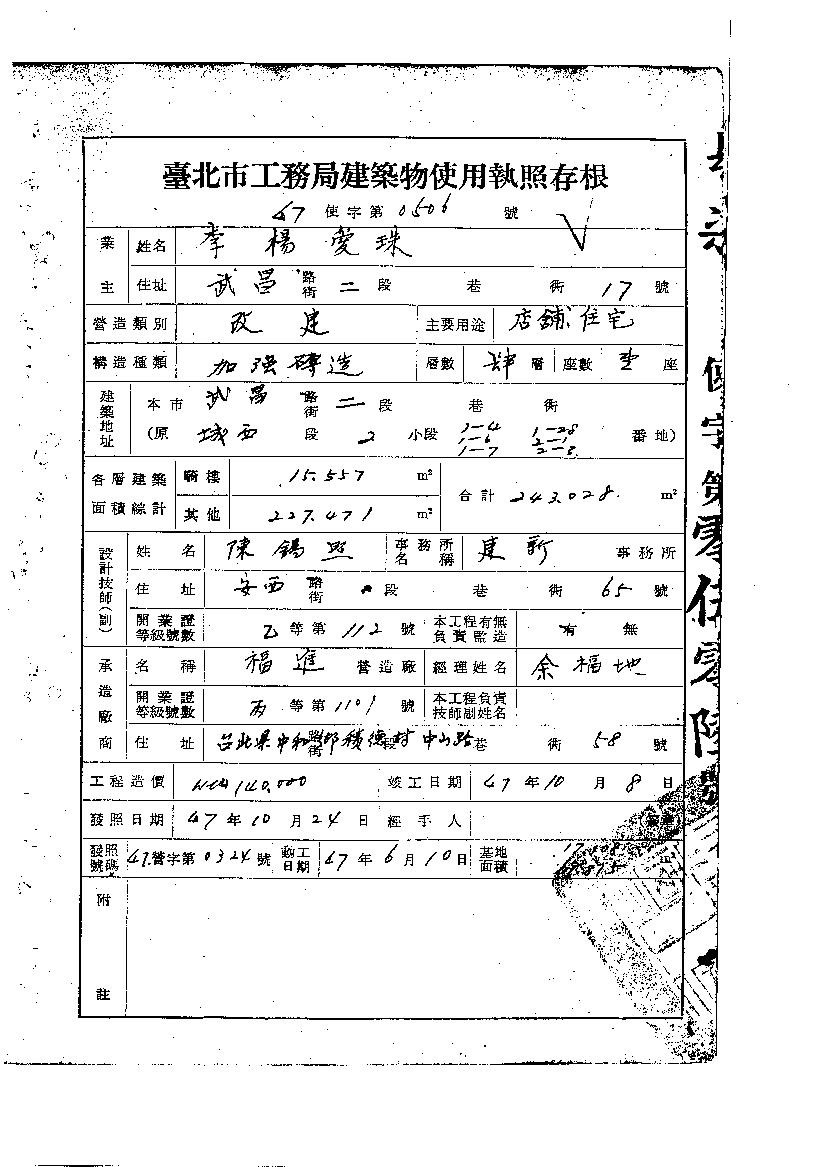 臺北市工務局建築物使用執照存根
47 使字第 0506 號
業主 姓名 李楊愛珠
住址 武昌 路街 二 段 巷 衖 17 號
營造類別 改建 主要用途 店舖、住宅
構造種類 加強磚造 層數 肆 層 座數 壹 座
建築地址 本市 武昌 路街 二 段 巷 衖
(原 城西 段 2 小段 1-4 1-6 1-7 1-28 2-1 2-3 番地)
各層建築面積綜計 騎樓 15.557 m² 合計 243.028 m²
其他 227.471 m²
設計技師(副) 姓名 陳錫照 事務所名稱 建新 事務所
住址 安西 路街 段 巷 衖 65 號
開業證等級號數 乙 等第 112 號 本工程有無負責監造 有 無
承造廠商 名稱 福進 營造廠 經理姓名 余福地
開業證等級號數 丙 等第 1101 號 本工程負責技師副姓名
住址 台北県中和鄉積德村 路街 段 中山路 巷 衖 58 號
工程造價 140,000 竣工日期 47 年 10 月 8 日
發照日期 47 年 10 月 24 日 經手人
發照號碼 47.營字第 0324 號 動工日期 47 年 6 月 10 日 基地面積
附註
使字第零伍零陸號